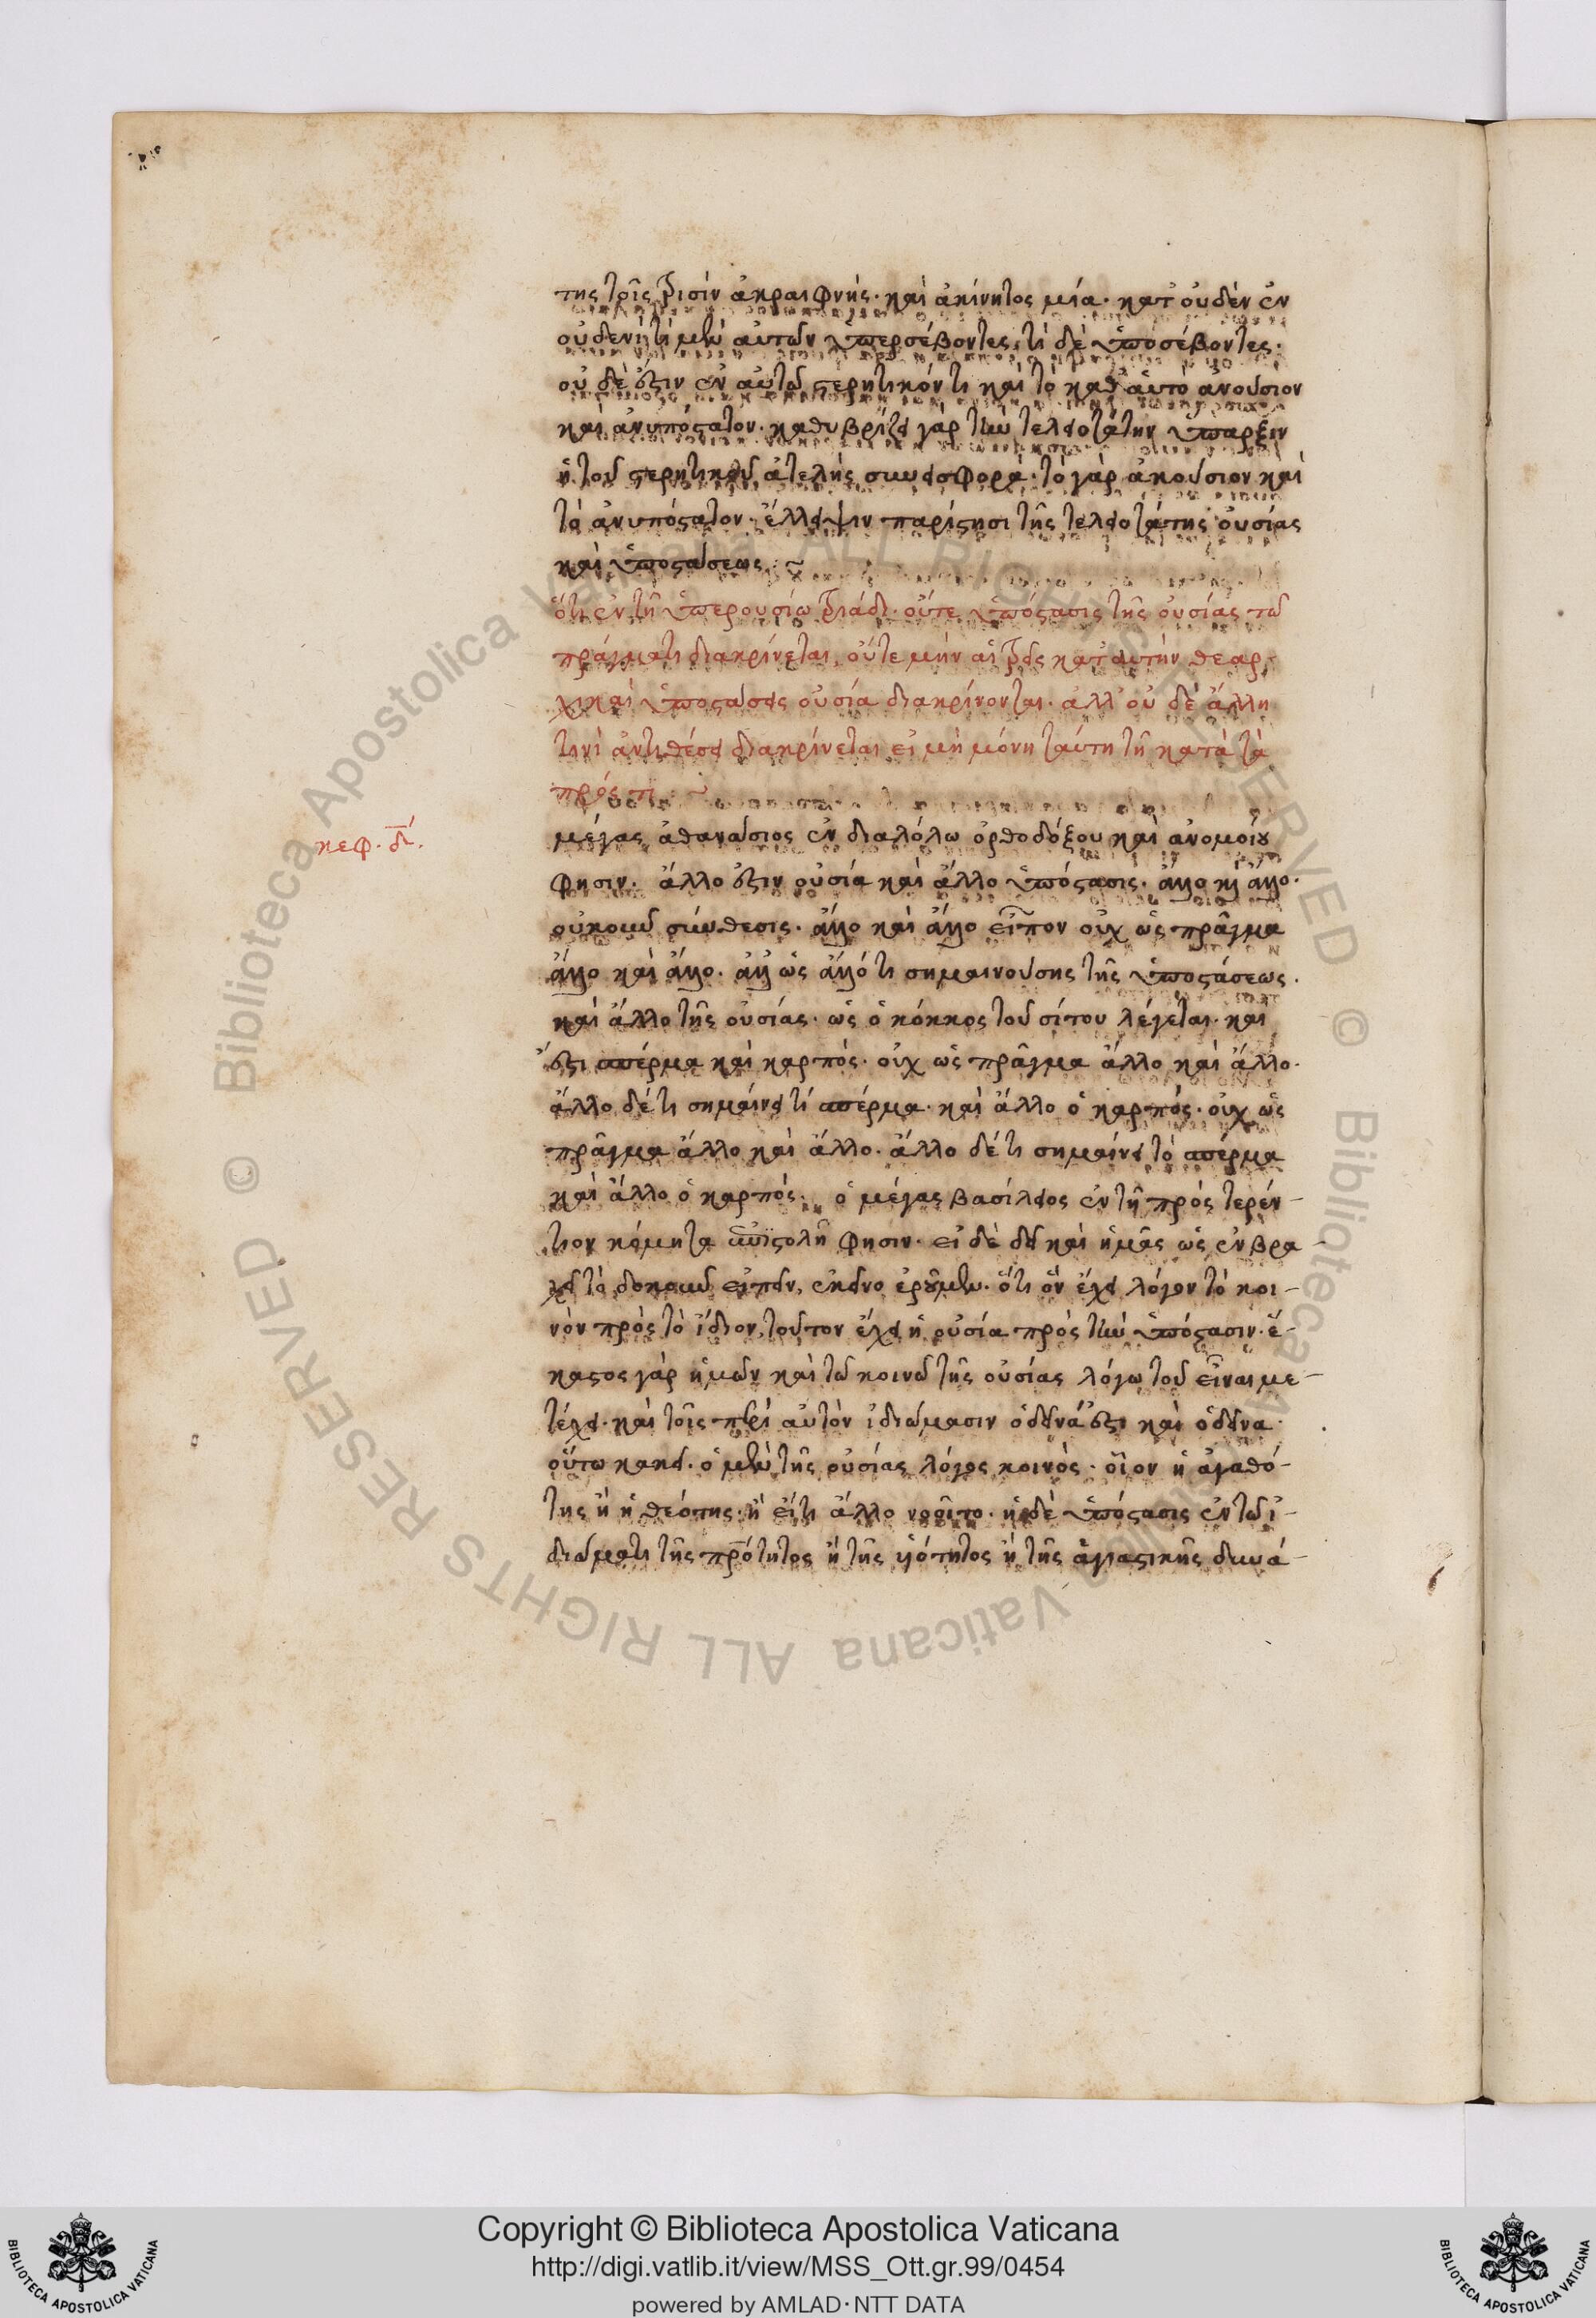 της τοῖς τρισὶν ἀκραιφνής· καὶ ἀκίνητος μία· κατ' οὐδὲν ἐν
οὐδενὶ τί μὲν αὐτῶν ὑπερσέβοντες, τί δὲ ὑποσέβοντες·
οὐδὲ ἔστιν ἐν αὐτῶ στερητικόν τι καὶ τὸ καθ' αὑτὸ ἀνούσιον
καὶ ἀνυπόστατον· καθυβρίζει γὰρ τὴν τελειοτάτην ὕπαρξιν
ἡ τοῦ στερητικοῦ ἀτελὴς συνεισφορά· τὸ γὰρ ἀκούσιον καὶ
τὸ ἀνυπόστατον· ἔλλειψιν παρίστησι τῆς τελειοτάτης οὐσίας
καὶ ὑποστάσεως ~
ὅτι ἐν τῆ ὑπερουσίω τριάδι· οὔτε ὑπόστασις τῆς οὐσίας τῶ
πράγματι διακρίνεται, οὔτε μὴν αἱ τρεῖς κατ' αὐτὴν θεαρ-
χικαὶ ὑποστάσεις οὐσία διακρίνονται· ἀλλ' οὐδὲ ἄλλη
τινὶ ἀντιθέσει διακρίνεται εἰ μὴ μόνη ταύτη τῆ κατὰ τὰ
πρός τι ~
κεφ. δι'.
μέγας ἀθανάσιος ἐν διαλόλω ὀρθοδόξου καὶ ἀνομοίου
φησιν· ἄλλο ἔστιν οὐσία καὶ ἄλλο ὑπόστασις· ἄλλο καὶ ἄλλο·
οὐκοῦν σύνθεσις· ἄλλο καὶ ἄλλο εἶπον οὐχ ὡς πρᾶγμα
ἄλλο καὶ ἄλλο· ἀλλ' ὡς ἄλλό τι σημαινούσης τῆς ὑποστάσεως·
καὶ ἄλλο τῆς οὐσίας· ὡς ὁ κόκκος τοῦ σίτου λέγεται· καὶ
ἔστι σπέρμα καὶ καρπός· οὐχ ὡς πρᾶγμα ἄλλο καὶ ἄλλο·
ἄλλο δέ τι σημαίνει τί σπέρμα· καὶ ἄλλο ὁ καρπός· οὐχ ὡς
πρᾶγμα ἄλλο καὶ ἄλλο· ἄλλο δέ τι σημαίνει τὸ σπέρμα
καὶ ἄλλο ὁ καρπός· ὁ μέγας βασίλειος ἐν τῆ πρὸς τερέν-
τιον κόμητα ἐπιστολῆ φησιν· εἰ δὲ δεῖ καὶ ἡμᾶς ὡς ἐν βρα-
χεῖ τὸ δοκοῦν εἰπεῖν, ἐκεῖνο ἐροῦμεν· ὅτι ὃν ἔχει λόγον τὸ κοι-
νὸν πρὸς τὸ ἴδιον, τοῦτον ἔχει ἡ οὐσία πρὸς τὴν ὑπόστασιν· ἕ-
καστος γὰρ ἡμῶν καὶ τῶ κοινῶ τῆς οὐσίας λόγω τοῦ εἶναι με-
τέχει· καὶ τοῖς περὶ αὐτὸν ἰδιώμασιν ὁ δεῖνά ἔστι καὶ ὁ δεῖνα·
οὕτω κακεῖ· ὁ μὲν τῆς οὐσίας λόγος κοινός· οἷον ἡ ἀγαθό-
της ἢ ἡ θεότης· ἢ εἴ τι ἄλλο νοοῖτο· ἡ δὲ ὑπόστασις ἐν τῶ ἰ-
διώματι τῆς πρότητος ἢ τῆς υἱότητος ἢ τῆς ἁγιαστικῆς δυνά-
Copyright © Biblioteca Apostolica Vaticana
http://digi.vatlib.it/view/MSS_Ott.gr.99/0454
powered by AMLAD·NTT DATA
BIBLIOTECA APOSTOLICA VATICANA
BIBLIOTECA APOSTOLICA VATICANA
© Biblioteca Apostolica Vaticana ALL RIGHTS RESERVED
© Biblioteca Apostolica Vaticana ALL RIGHTS RESERVED